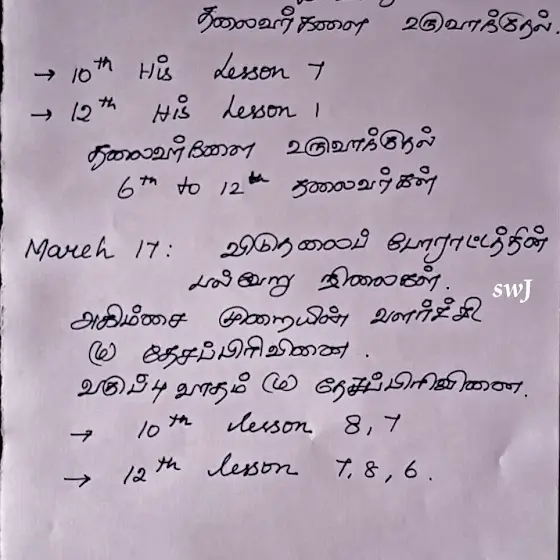 தலைவர்களை உருவாக்குதல்.
→ 10th His Lesson 7
→ 12th His Lesson 1
தலைவர்களை உருவாக்குதல்
6th to 12th தலைவர்கள்
March 17: விடுதலைப் போராட்டத்தின்
பல்வேறு நிலைகள்.
swJ
அகிம்சை முறையின் வளர்ச்சி
(ம) தேசப்பிரிவினை.
வகுப்புவாதம் (ம) தேசப்பிரிவினை.
→ 10th lesson 8, 7
→ 12th lesson 7, 8, 6.